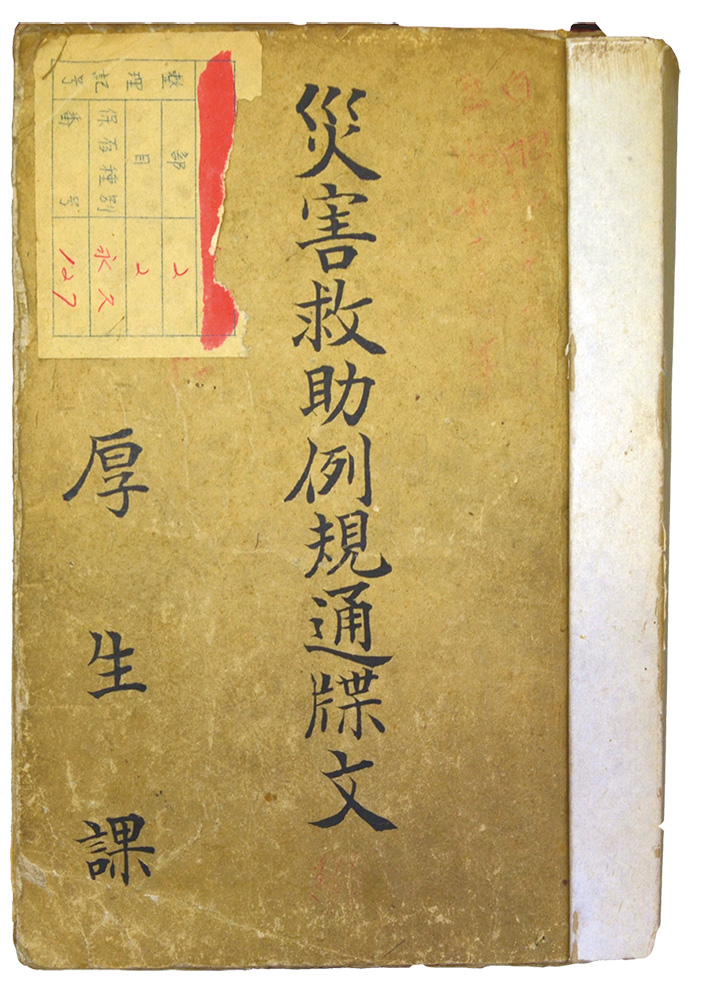 災害救助例規通牒文
厚生課
整理記号
部 2
目 2
保存種別 永久
番号 127